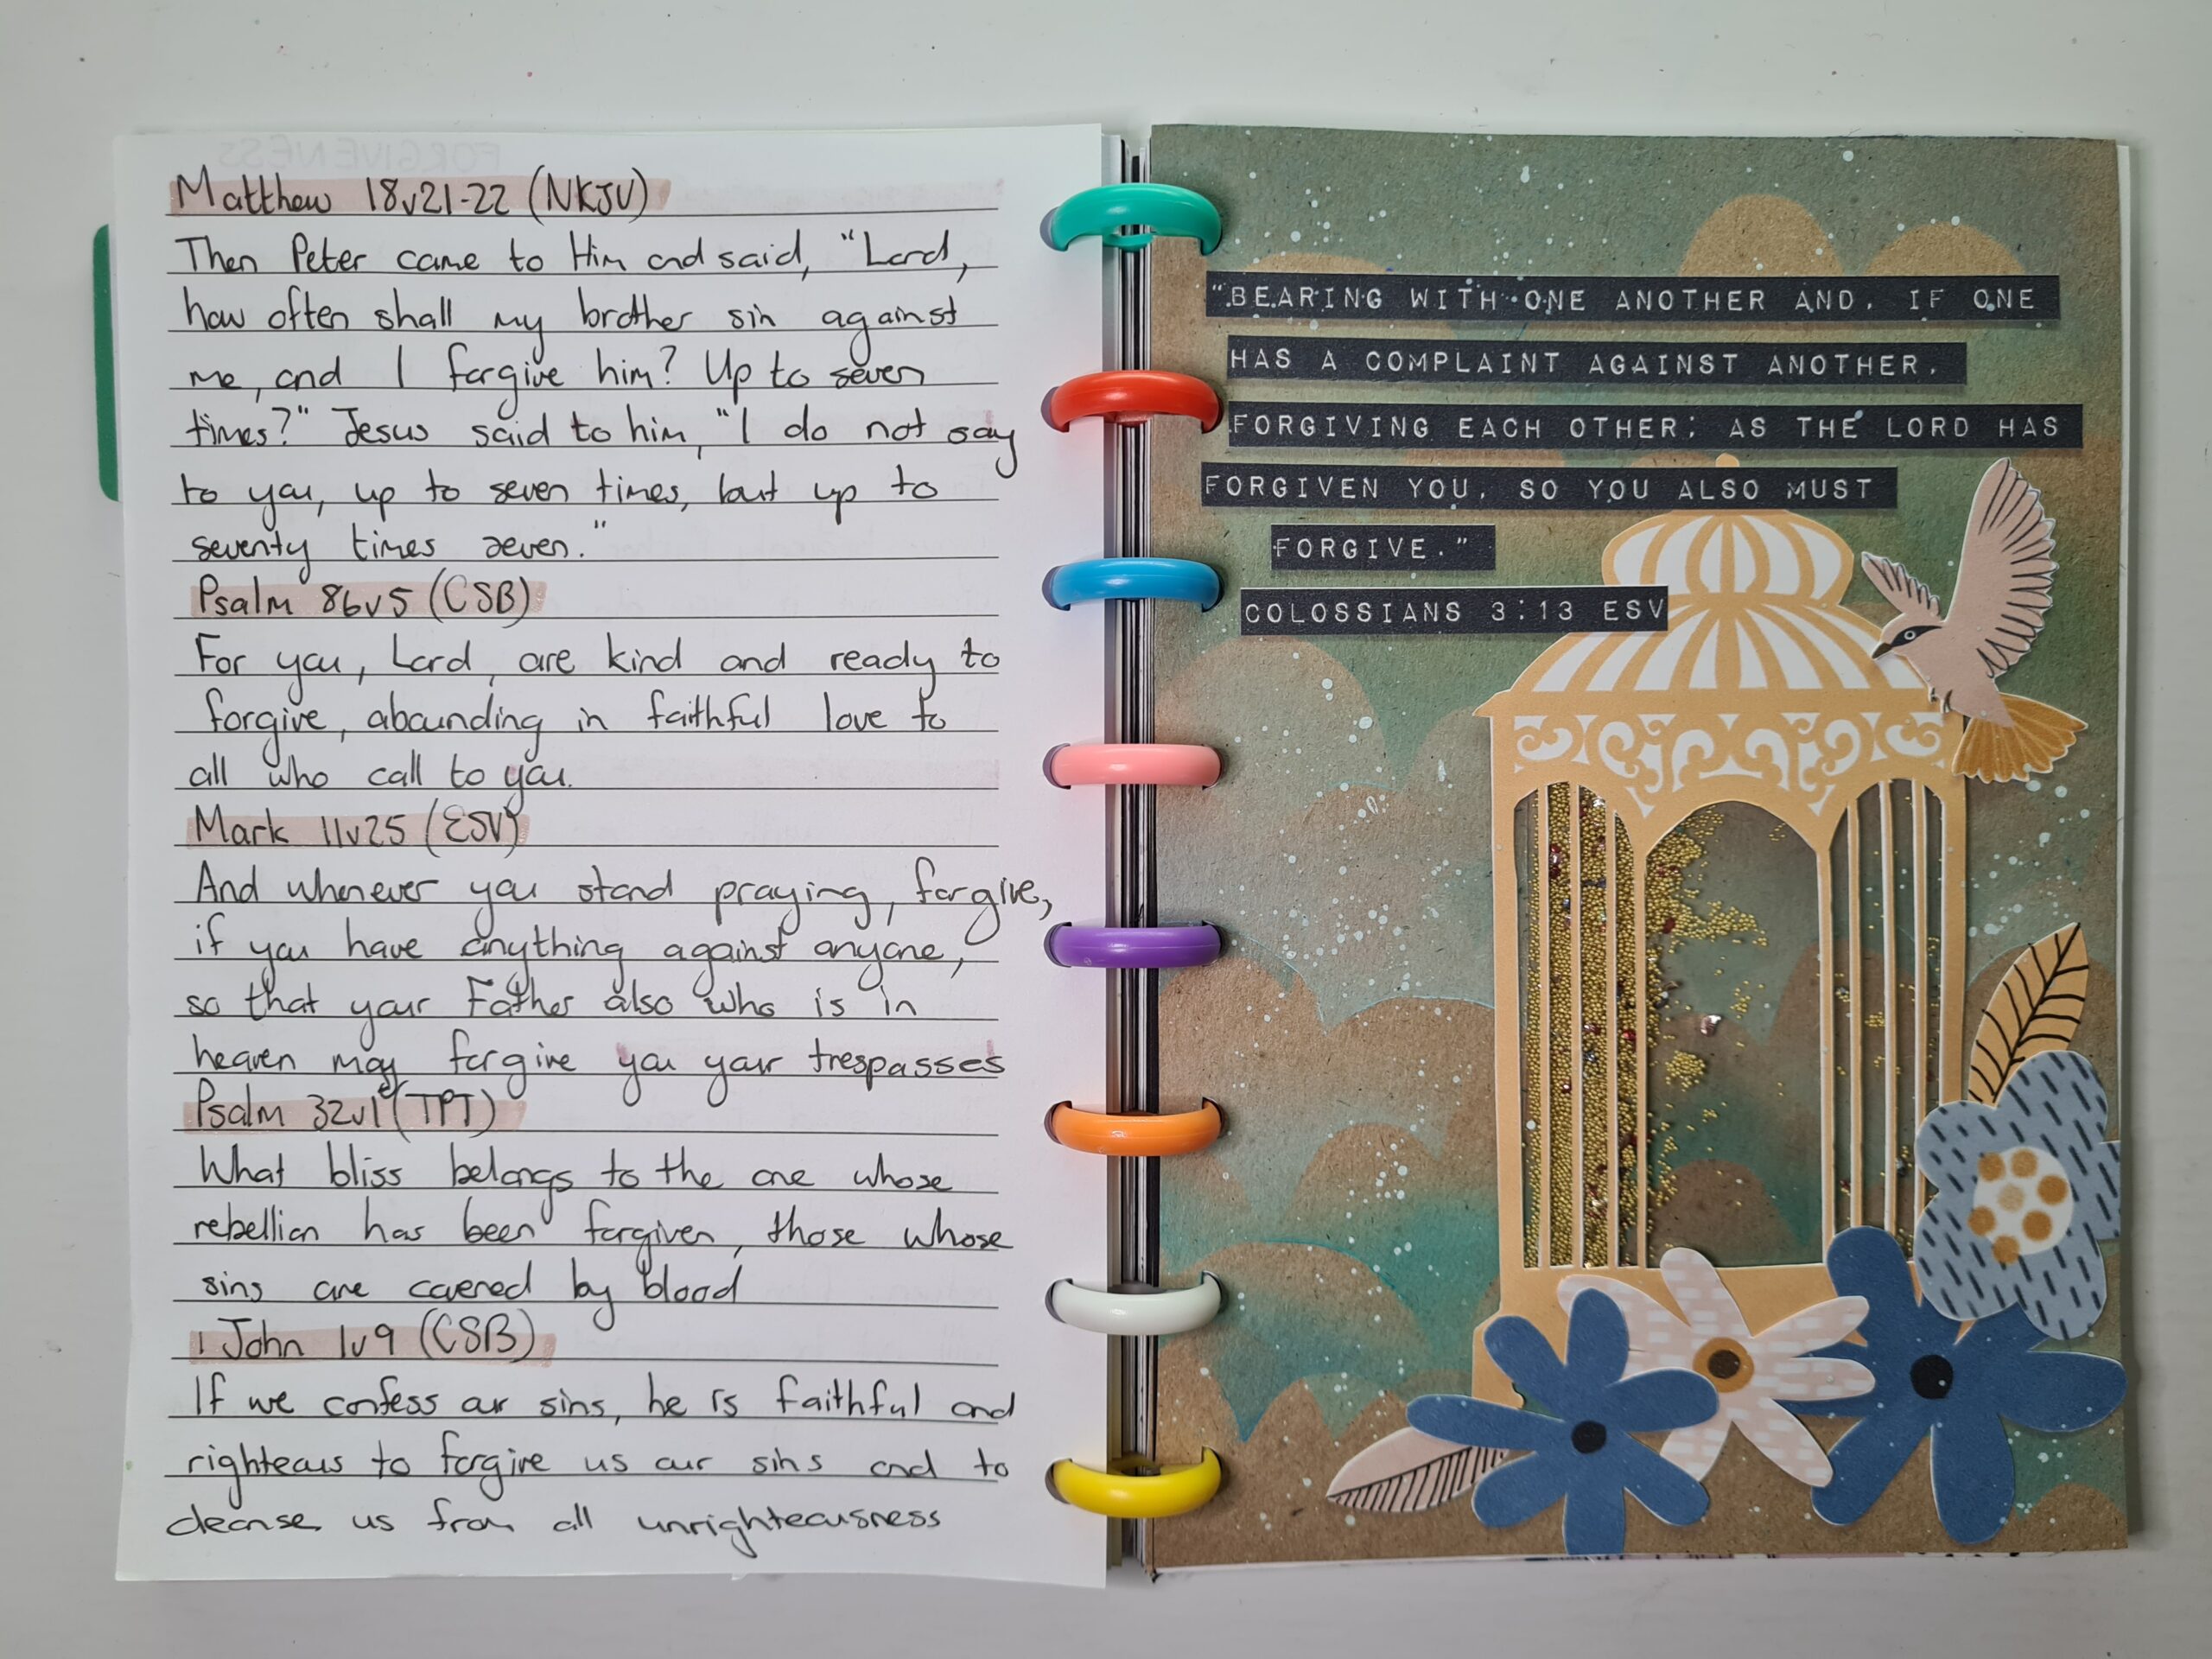 FORGIVENESS
Matthew 18v21-22 (NKJV)
Then Peter came to Him and said, "Lord,
how often shall my brother sin against
me, and I forgive him? Up to seven
times?" Jesus said to him, "I do not say
to you, up to seven times, but up to
seventy times seven."
Psalm 86v5 (CSB)
For you, Lord, are kind and ready to
forgive, abounding in faithful love to
all who call to you.
Mark 11v25 (ESV)
And whenever you stand praying, forgive,
if you have anything against anyone,
so that your Father also who is in
heaven may forgive you your trespasses
Psalm 32v1 (TPT)
What bliss belongs to the one whose
rebellion has been forgiven, those whose
sins are covered by blood
1 John 1v9 (CSB)
If we confess our sins, he is faithful and
righteous to forgive us our sins and to
cleanse us from all unrighteousness
"BEARING WITH ONE ANOTHER AND, IF ONE
HAS A COMPLAINT AGAINST ANOTHER,
FORGIVING EACH OTHER; AS THE LORD HAS
FORGIVEN YOU, SO YOU ALSO MUST
FORGIVE."
COLOSSIANS 3:13 ESV